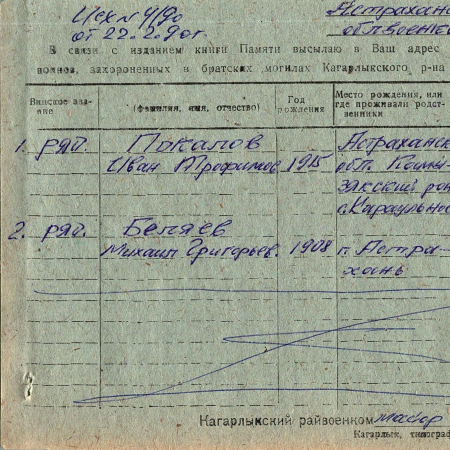 Исх № 4/90
Астрахан
от 22.2.90г.
облвоенко
В связи с изданием книги Памяти высылаю в Ваш адрес
воинов, захороненных в братских могилах Кагарлыкского р-на
Воинское зва-
ние
(фамилия, имя, отчество)
Год
рождения
Место рождения, или
где проживали родст-
венники
1. ряд. Покалов Астраханск
Иван Трофимов. 1915 обл. Камы-
зякский рон
с. Караульно
2. ряд. Беляев
Михаил Григорьев. 1908 г. Астра-
хань
Кагарлыкский райвоенком майор
Кагарлык, типограф